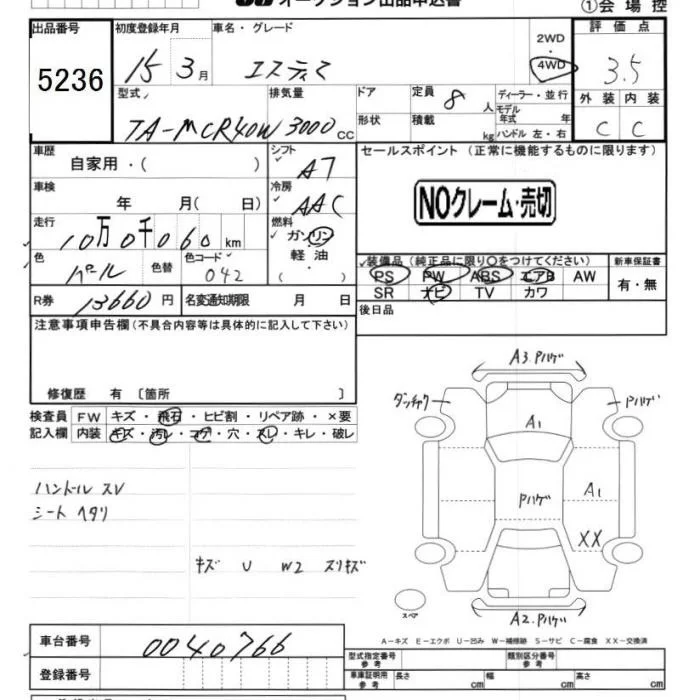 オークション出品申込書
①会場控
出品番号 初度登録年月 車名・グレード 2WD・4WD 評価点
5236 15 3月 エスティマ 3.5
型式 排気量 ドア 定員 8人 ディーラー・並行 外装 内装
TA-MCR40W 3000cc 形状 積載 kg モデル年式 年 ハンドル 左・右 C C
車歴 自家用・( ) シフト AT セールスポイント (正常に機能するものに限ります)
車検 年 月( 日) 冷房 AAC NOクレーム・売切
走行 10万0千060km 燃料 ガソリン
色 パール 色替 色コード 042 軽油・( )
装備品(純正品に限り○をつけてください) 新車保証書
PS PW ABS エアB AW 有・無
SR ナビ TV カワ
R券 13660円 名変通知期限 月 日 後日品
注意事項申告欄(不具合内容等は具体的に記入して下さい)
修復歴 有〔箇所 〕
検査員 FW キズ・飛石・ヒビ割・リペア跡・×要
記入欄 内装 キズ・汚レ・コゲ・穴・スレ・キレ・破レ
ハンドル スレ
シート ヘタリ
キズ U W2 スリキズ
A3.Pハゲ
ダッチャク Pハゲ
A1
Pハゲ A1
XX
スペア A2.Pハゲ
A-キズ E-エクボ U-凹み W-補修跡 S-サビ C-腐食 XX-交換済
車台番号 0040766
登録番号
型式指定番号 参考 類別区分番号 参考
車庫証明用 参考 長さ cm 幅 cm 高さ cm